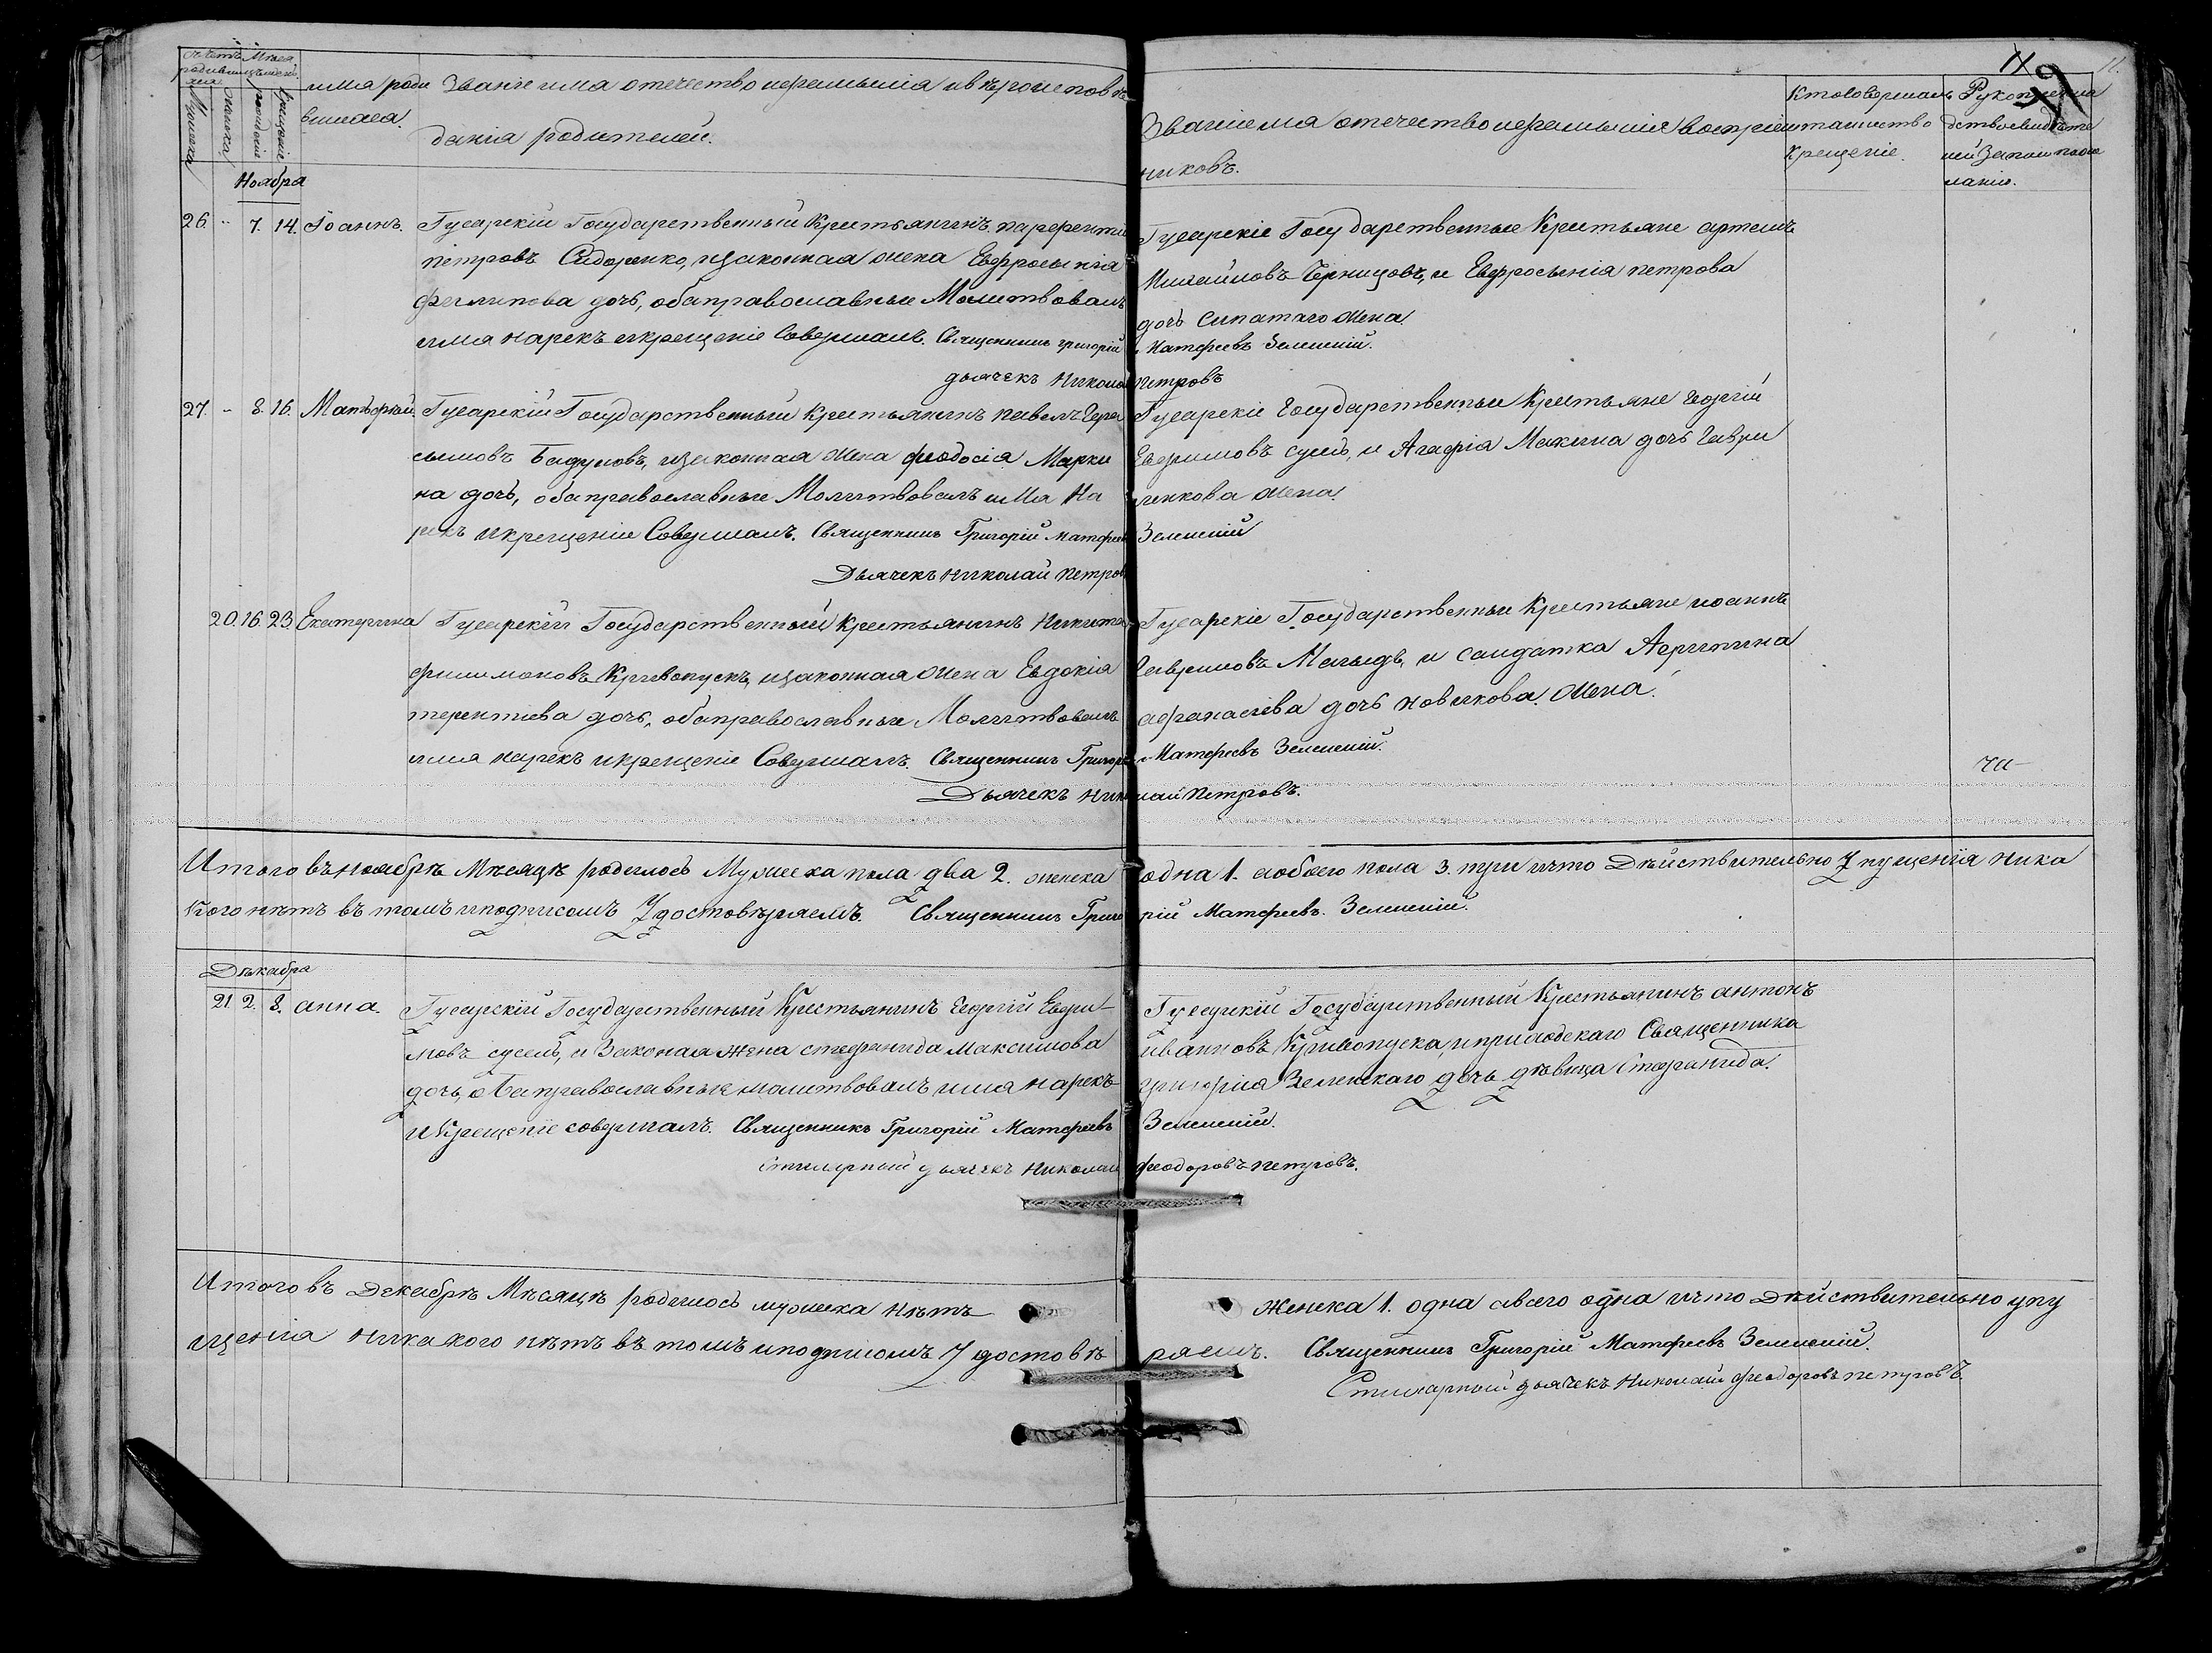 11
11.
Счетъ родившихся
Мѣсяцъ
Мужеска
Женска
рожденіе
Крещеніе
имя роди
вшихся.
Званіе има отечество ифамилія ивѣроисповѣ
данія родителей.
Званіе има отечество ифамиліе воспріем
никовъ.
Ктосовершалъ
таинство
Крещеніе.
Рукоприкла
дство свидѣте
лей Записи пожи
ланію.
Ноября
26. " 7. 14. Іоаннъ.
Гусарскій Государственный Крестьянинъ парфентій
петровъ Сидоренко, изаконная жена Евфросынія
филипова дочь, обаправославные Молитвовалъ
имя нарекъ икрещеніе Совершалъ. Священникъ григорій Матфеевъ Зеленскій.
дьячекъ Николай петровъ
Гусарскіе Государственные Крестьяне артемъ
Михайловъ Черницовъ, и Евфросынія петрова
дочь Сипатаго жена.
27. - 8. 16. Матѳей.
Гусарскій Государственный крестьянинъ павелъ Гера
сымовъ Бадуновъ, изаконная жена феодосія Марки
на дочь, обаправославные Молитвовалъ имя На
рекъ икрещеніе Совершалъ. Священникъ Григорій Матфеевъ Зеленскій
Дьячекъ Николай Петровъ
Гусарскіе Государственные Крестьяне Георгій
Евфимовъ сусль, и Агафія Макиина дочь Гаври
ленкова жена.
20. 16. 23. Екатерина
Гусарскій Государственный крестьянинъ Никита
филимоновъ Кривопускъ, изаконная жена Евдокія
терентіева дочь, обаправославные Молитвовалъ
имя нарекъ икрещеніе Совершалъ. Священникъ Григорій Матфеевъ Зеленскій.
Дьячекъ Николай Петровъ.
Гусарскіе Государственные Крестьяне иоаннъ
Гавриловъ и салдатка Агрипина
афанасіева дочь новикова. жена.
Итого въноябрѣ Мѣсяцѣ родилось Мужеска пола два 2. женска одна 1. аобоего пола 3. три ичто Дѣйствительно Упущенія Ника
кого нѣтъ въ томъ иподписомъ Удостовѣряемъ. Священникъ Григорій Матфеевъ. Зеленскій.
Дѣкабря
21. 2. 8. анна.
Гусарскій Государственный Крестьянинъ Георгій Евфи
мовъ сусель, и Законая жена стефанида Максимова
дочь, обаправославные молитвовалъ имя нарекъ
иКрещеніе совершалъ. Священникъ Григорій Матфеевъ Зеленскій.
Стихарный дьячекъ Николай феодоровъ петровъ.
Гусарскій Государственный Крестьянинъ антонъ
ивановъ Кривопуска, иприходскаго Священника
григорія Зеленскаго дочь дѣвица Стефанида.
Итого въ Декабрѣ Мѣсяцѣ родилось мужеска нѣтъ женска 1. одна авсего одна ичто Дѣйствительно упу
щенія никакого нѣтъ въ томъ иподписомъ Удостовѣряемъ. Священникъ Григорій Матфеевъ Зеленскій.
Стихарный дьячекъ Николай феодоровъ петровъ